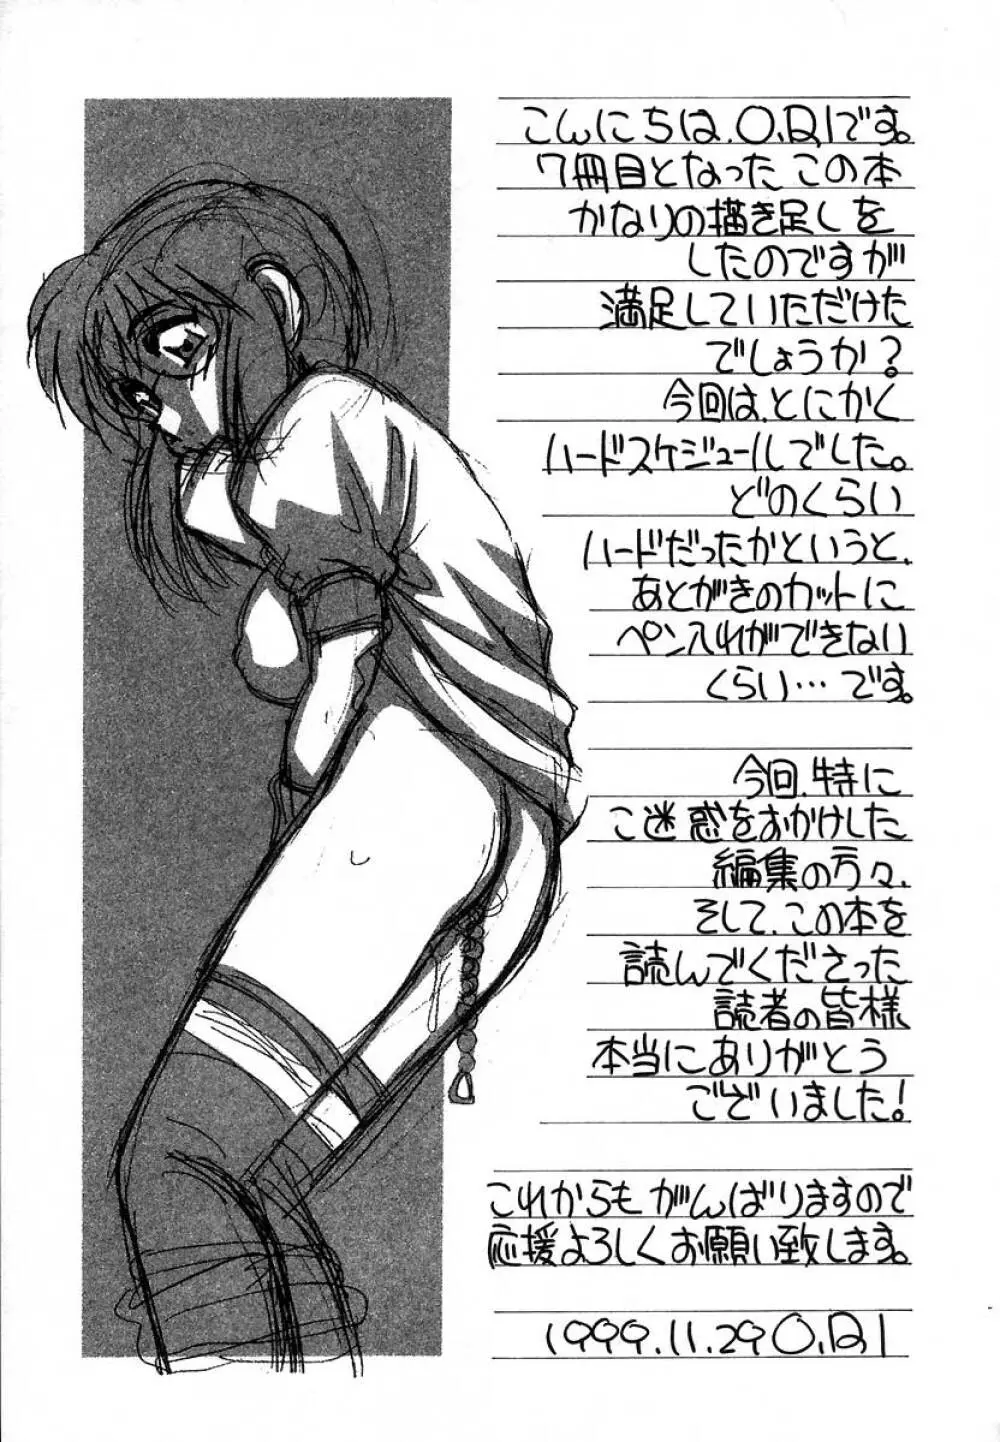 こんにちは、O.RIです。
7冊目となった この本
かなりの描き足しを
したのですが
満足していただけた
でしょうか?
今回は、とにかく
ハードスケジュールでした。
どのくらい
ハードだったかというと、
あとがきのカットに
ペン入れができない
くらい…です。
今回、特に
ご迷惑をおかけした
編集の方々、
そして、この本を
読んでくださった
読者の皆様
本当にありがとう
ございました!
これからも がんばりますので
応援よろしくお願い致します。
1999.11.29 O.RI